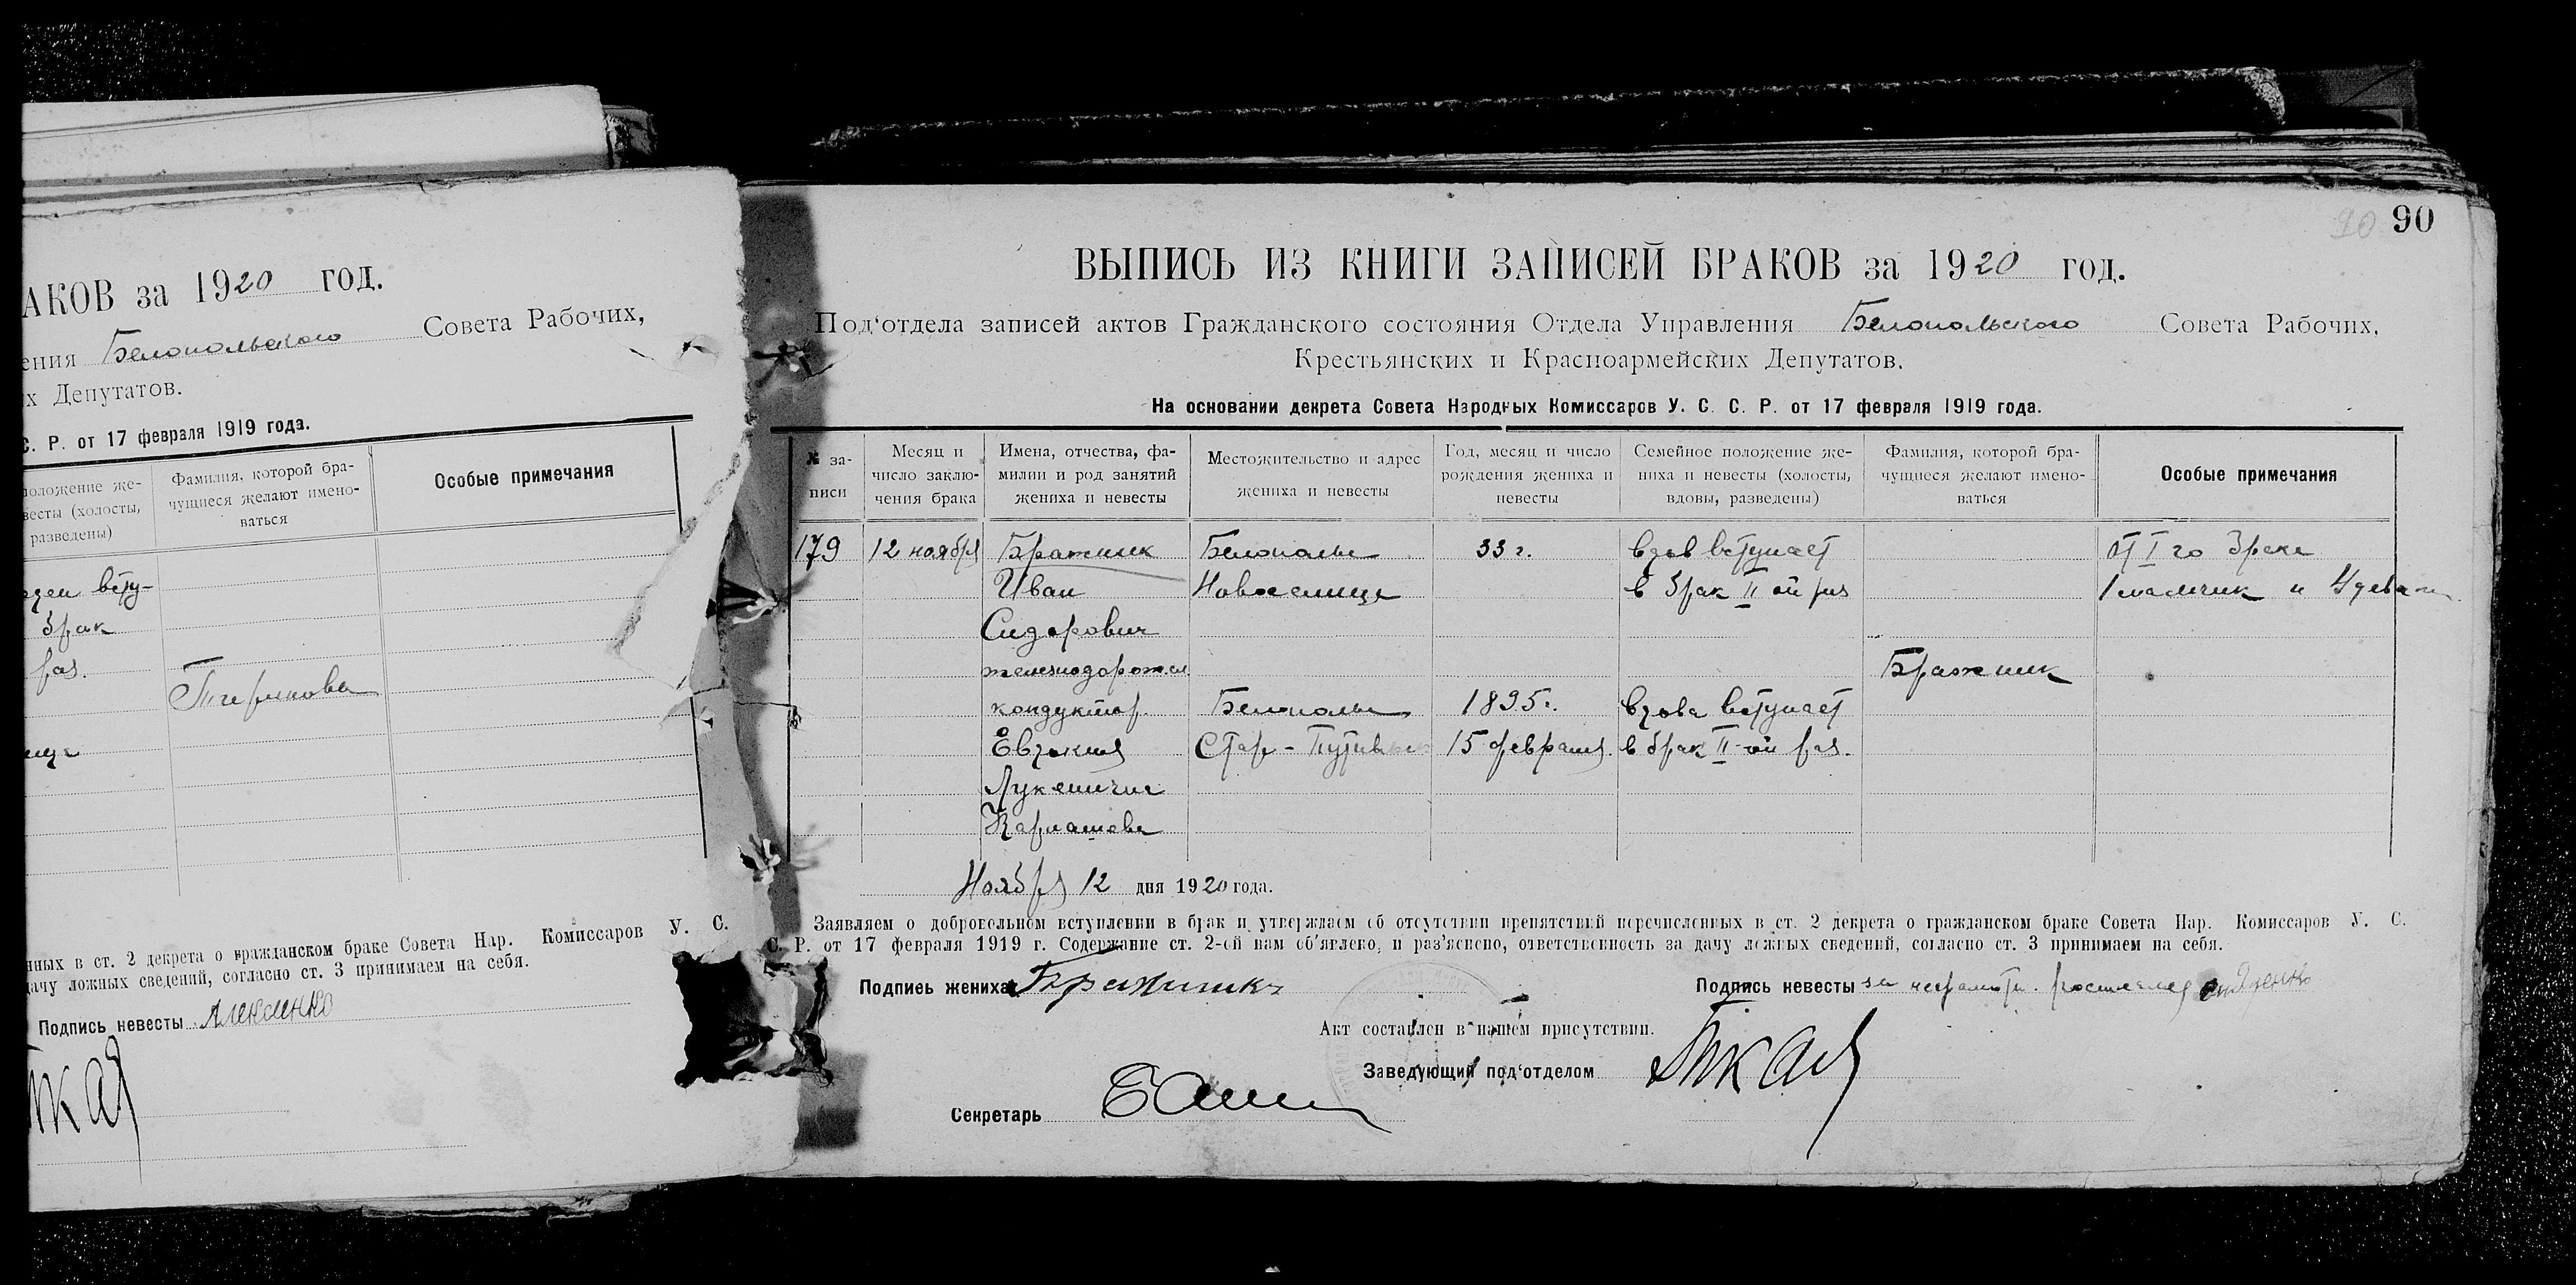 АКОВ за 1920 год.
ения Белопольского Совета Рабочих,
х Депутатов.
С. Р. от 17 февраля 1919 года.
положение же-
весты (холосты,
разведены)
Фамилия, которой бра-
чущиеся желают имено-
ваться
Особые примечания
всту-
брак
раз.
ица
нных в ст. 2 декрета о гражданском браке Совета Нар. Комиссаров У. С.
дачу ложных сведений, согласно ст. 3 принимаем на себя.
Подпись невесты Алексенко
90 90
ВЫПИСЬ ИЗ КНИГИ ЗАПИСЕЙ БРАКОВ за 1920 год.
Под‘отдела записей актов Гражданского состояния Отдела Управления Белопольского Совета Рабочих,
Крестьянских и Красноармейских Депутатов.
На основании декрета Совета Народных Комиссаров У. С. С. Р. от 17 февраля 1919 года.
№ за-
писи
Месяц и
число заклю-
чения брака
Имена, отчества, фа-
милии и род занятий
жениха и невесты
Местожительство и адрес
жениха и невесты
Год, месяц и число
рождения жениха и
невесты
Семейное положение же-
ниха и невесты (холосты,
вдовы, разведены)
Фамилия, которой бра-
чущиеся желают имено-
ваться
Особые примечания
179 12 ноября Бражник Белополье 33 г. вдов вступает от I го брака
Иван Новоселица в брак II ой раз 1 мальчик и 4 девоч
Сидорович
железнодорожн Бражник
кондуктор Белополье 1895 г. вдова вступает
Евдокия Стар-Путивльск 15 февраля. в брак II-ой раз.
Лукинична
Карпашова
Ноября 12 дня 1920 года.
Заявляем о добровольном вступлении в брак и утверждаем об отсутствии препятствий перечисленных в ст. 2 декрета о гражданском браке Совета Нар. Комиссаров У. С.
С. Р. от 17 февраля 1919 г. Содержание ст. 2-ой нам об‘явлено, и раз‘яснено, ответственность за дачу ложных сведений, согласно ст. 3 принимаем на себя.
Подпись жениха Бражникъ
Подпись невесты за неграмотн.
Акт составлен в нашем присутствии.
Заведующий под‘отделом
Секретарь